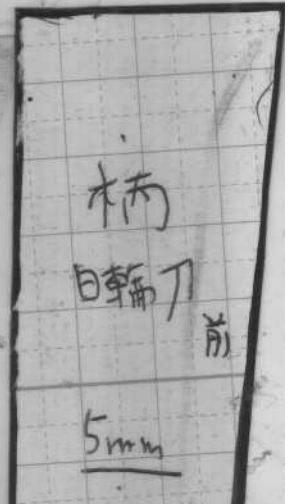 柄
日輪刀
前
5mm